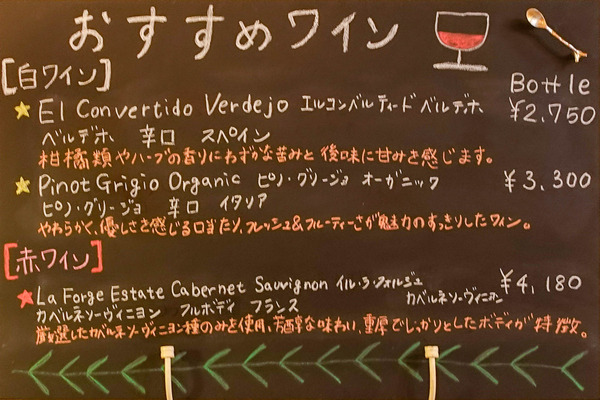 おすすめワイン
[白ワイン]
Bottle
★ El Convertido Verdejo エルコンベルティード ベルデホ ¥2,750
ベルデホ 辛口 スペイン
柑橘類やハーブの香りにわずかな苦みと後味に甘みを感じます。
★ Pinot Grigio Organic ピノ・グリージョ オーガニック ¥3,300
ピノ・グリージョ 辛口 イタリア
やわらかく、優しさを感じる口当たり、フレッシュ&フルーティーさが魅力のすっきりしたワイン。
[赤ワイン]
★ La Forge Estate Cabernet Sauvignon イル・ラ・フォルジュ カベルネソーヴィニヨン ¥4,180
カベルネソーヴィニヨン フルボディ フランス
厳選したカベルネ・ソーヴィニヨン種のみを使用、芳醇な味わい、重厚でしっかりとしたボディが特徴。